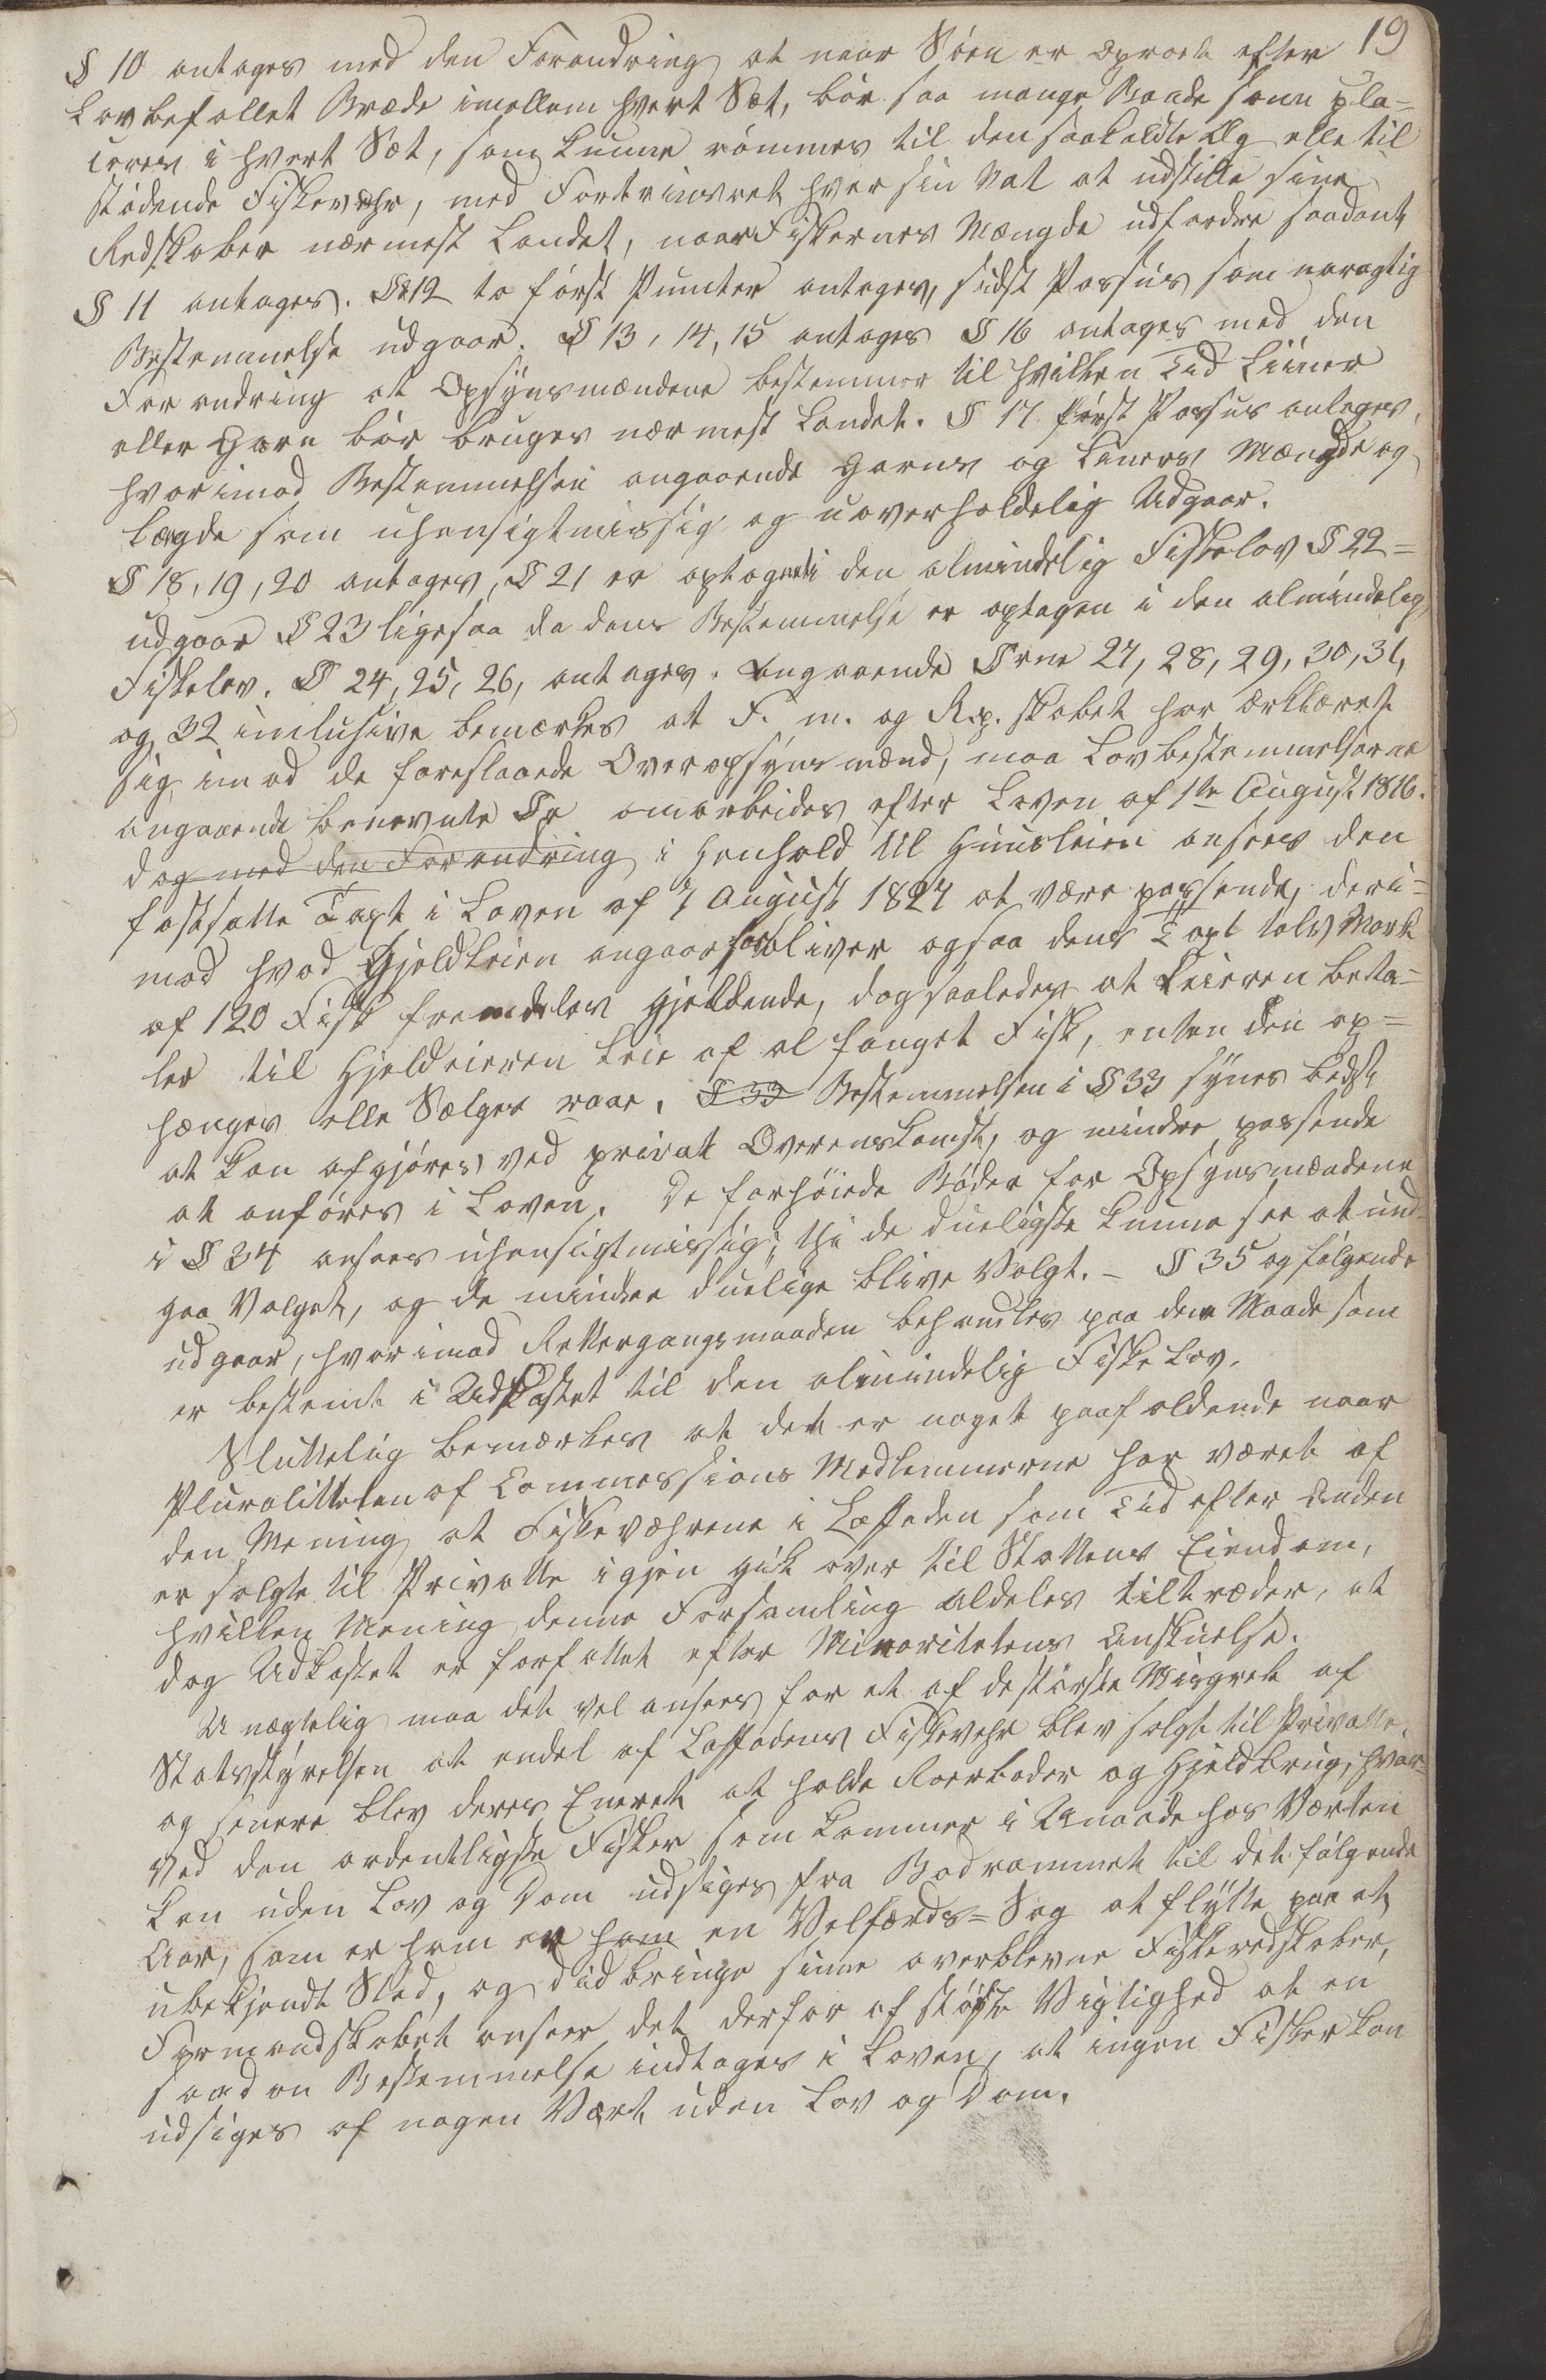 19
§ 10 antages med den Forandring at naar Söen er opraadt efter
Lovbefallet Bræde imellem hvert Sæt, bör saa mange Baade som pla=
ceres i hvert Sæt, som kunne römmes til den saakaldte Æg elle til
stödende Fiskevæhr, med Fortrinsret hver sin Nat at udstille sine
Redskaber nærmest Landet, naar Fiskernes Mængde udfordre saadant
§ 11 antages. § 12 to först Puncter antages, sidst Passus som unöagtig
Bestemmelse udgaar. § 13, 14, 15 antages § 16 antages med den
Forandring at Opsÿnsmændene bestemmer til hvilken Tid Liiner
eller Garn bör bruges nærmest Landet. § 17 först Passus antages,
hvorimod Bestemmelsen angaaende Garns og Liners Mængde og
Længde som uhensigtmæssig og uoverholdelig Udgaar.
§ 18, 19, 20 antages, § 21 er optagnet i den almindelig Fiskelov § 22=
udgaar § 23 ligesaa da dens Bestemmelse er optagen i den almindelig
Fiskelov. § 24, 25, 26, antages. Angaaende §rne 27, 28, 29, 30, 31,
og 32 inclusive bemærkes at F. m. og Rep. skabet har ærklæret
sig imod de foreslaaede Overopsÿnsmænd, maa Lovbestemmelserne
angaaende benevnte §r omarbeides efter Loven af 1ste August 1816.
dog med den Forandring i Henhold til Huusleien ansees den
fastsatte Taxt i Loven af 7 August 1827 at være passende, deri=
mod hvad Hjeldleien angaar forbliver ogsaa dens Taxt tolv Mark
af 120 Fisk fremdeles gjeldende, dog saaledes at Leieren beta=
ler til Hjeldeieren Leie af al fanget Fisk, enten den op=
hænges elle Sælges raae. § 33 Bestemmelsen i § 33 sÿnes bedst
at kan afgjöres ved privat Overenskomst, og mindre passende
at anföres i Loven. De forhöiede Böder for Opsynsmændene
i § 34 ansees uhensigtmæssig; thi de dueligste kunne see at und=
gaa Valget, og de mindre duelige blive Valgt. – § 35 og fölgende
udgaar, hvorimod Rettergangsmaaden behandles paa den Maade som
er bestemt i Udkastet til den almindelig Fiske Lov.
Sluttelig bemærkes at det er noget paafaldende naar
Pluralitteten af Commossions Medlemmerne har været af
den Mening at Fiskeværhrene i Loffoden som Tid efter Anden
er solgte til Privatte igjen gik over til Statens Eiendom,
hvilken Mening denne Forsamling aldeles tiltræder, at
dog Udkastet er forfattet efter Minoritetens Anskuelse.
Unægtelig maa det vel ansees for et af de störste Misgreb af
Statsstyrelsen at endel af Loffodens Fiskevehr blev solgt til Privatte,
og senere blev deres Eneret at holde Roerboder og Hjeldbrug, hvor=
ved den ordentligste Fisker som kommer i Unaade hos Værten
kan uden Lov og Dom udsiges fra Bodrommet til det fölgende
Aar, som er ham er ham en Velfærds= Sag at flÿtte paa et
ubekjendt Sted, og did bringe sine overblevne Fiskeredskaber,
Formandskabet anseer det derfor af störste Vigtighed at en
saadan Bestemmelse indtages i Loven, at ingen Fisker kan
udsiges af nogen Vært uden Lov og Dom.